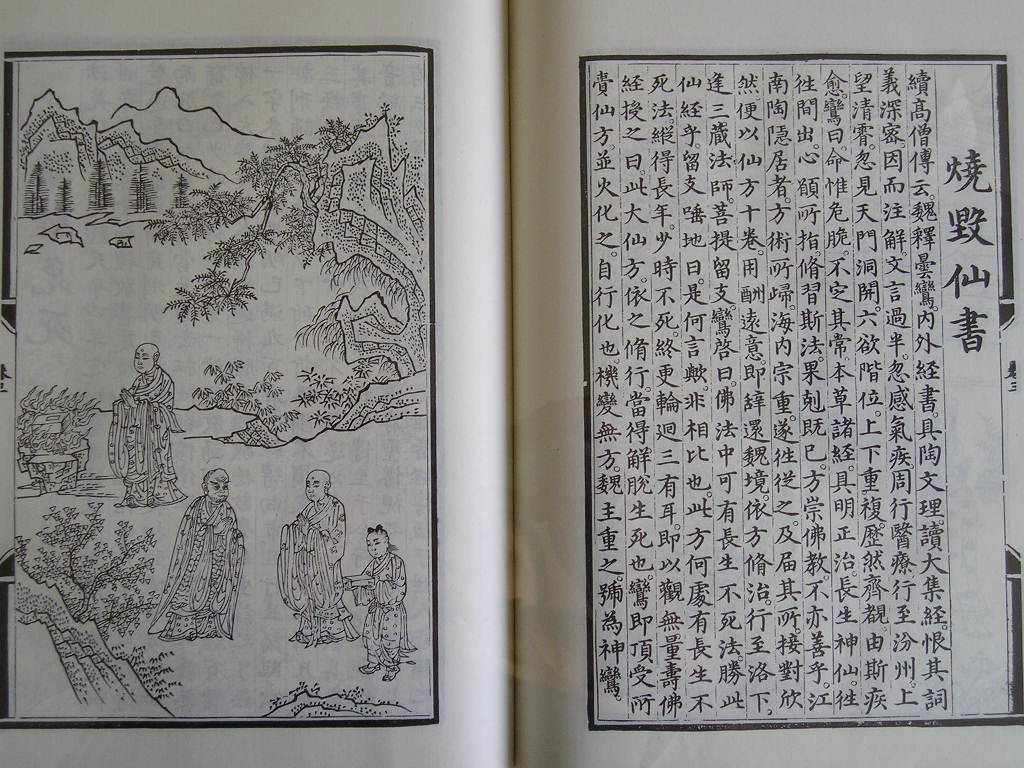 燒毀仙書
續高僧傳云。魏釋曇鸞。內外經書。具陶文理。讀大集經。恨其詞
義深密。因而注解。文言過半。忽感氣疾。周行醫療。行至汾州。上
望清霄。忽見天門洞開。六欲階位。上下重複。歷然齊覩。由斯疾
愈。鸞曰。命惟危脆。不定其常。本草諸經。具明正治。長生神仙。往
往間出。心願所指。脩習斯法。果剋既已。方崇佛教。不亦善乎。江
南陶隱居者。方術所歸。海內宗重。遂往從之。及屆其所。接對欣
然。便以仙方十卷。用酬遠意。即辭還魏境。依方脩治。行至洛下。
逢三藏法師。菩提留支。鸞啓曰。佛法中可有長生不死法。勝此
仙經乎。留支唾地曰。是何言歟。非相比也。此方何處有長生不
死法。縱得長年。少時不死。終更輪迴三有耳。即以觀無量壽佛
經授之曰。此大仙方。依之脩行。當得解脫生死也。鸞即頂受。所
賷仙方。並火化之。自行化也。機變無方。魏主重之。號為神鸞。
卷三